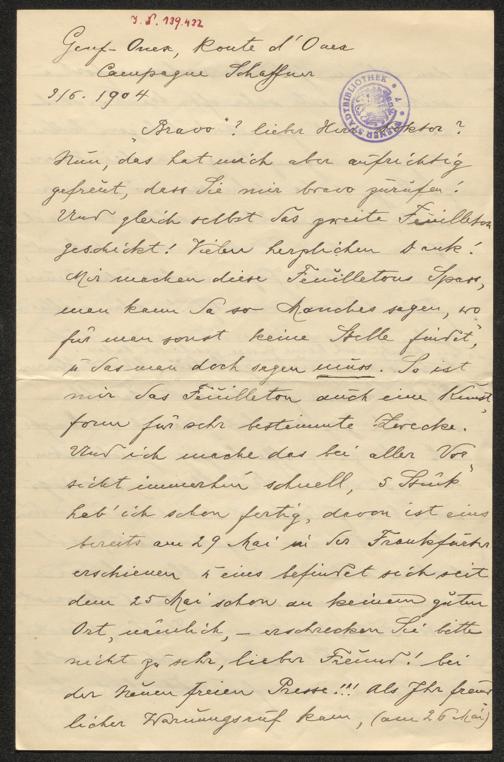 J. N. 139.422
Genf-Onex, Route d'Onex
Campagne Schaffner
9/6. 1904
WIENER STADTBIBLIOTHEK
„Bravo“? lieber Herr Doktor?
Nun, das hat mich aber aufrichtig
gefreut, dass Sie mir bravo zurufen!
Und gleich selbst das zweite Feuilleton
geschickt! Vielen herzlichen Dank!
Mir machen diese Feuilletons Spass,
man kann da so Manches sagen, wo
für man sonst keine Stelle findet,
u das man doch sagen muss. So ist
mir das Feuilleton auch eine Kunst
form für sehr bestimmte Zwecke.
Und ich mache das bei aller Vor
sicht immerhin schnell, 5 „Stück“
hab' ich schon fertig, davon ist eins
bereits am 29 Mai in der Frankfurter
erschienen u eins befindet sich seit
dem 25 Mai schon an keinem guten
Ort, nämlich, – erschrecken Sie bitte
nicht zu sehr, lieber Freund! bei
der Neuen freien Presse!!! Als Ihr freund
licher Warnungsruf kam, (am 26 Mai)